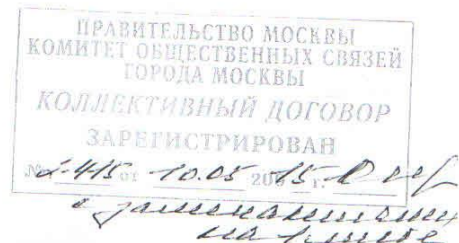 ПРАВИТЕЛЬСТВО МОСКВЫ
КОМИТЕТ ОБЩЕСТВЕННЫХ СВЯЗЕЙ
ГОРОДА МОСКВЫ
КОЛЛЕКТИВНЫЙ ДОГОВОР
ЗАРЕГИСТРИРОВАН
№ 2-415 от 10.05 2015 г.
с замечаниями
на